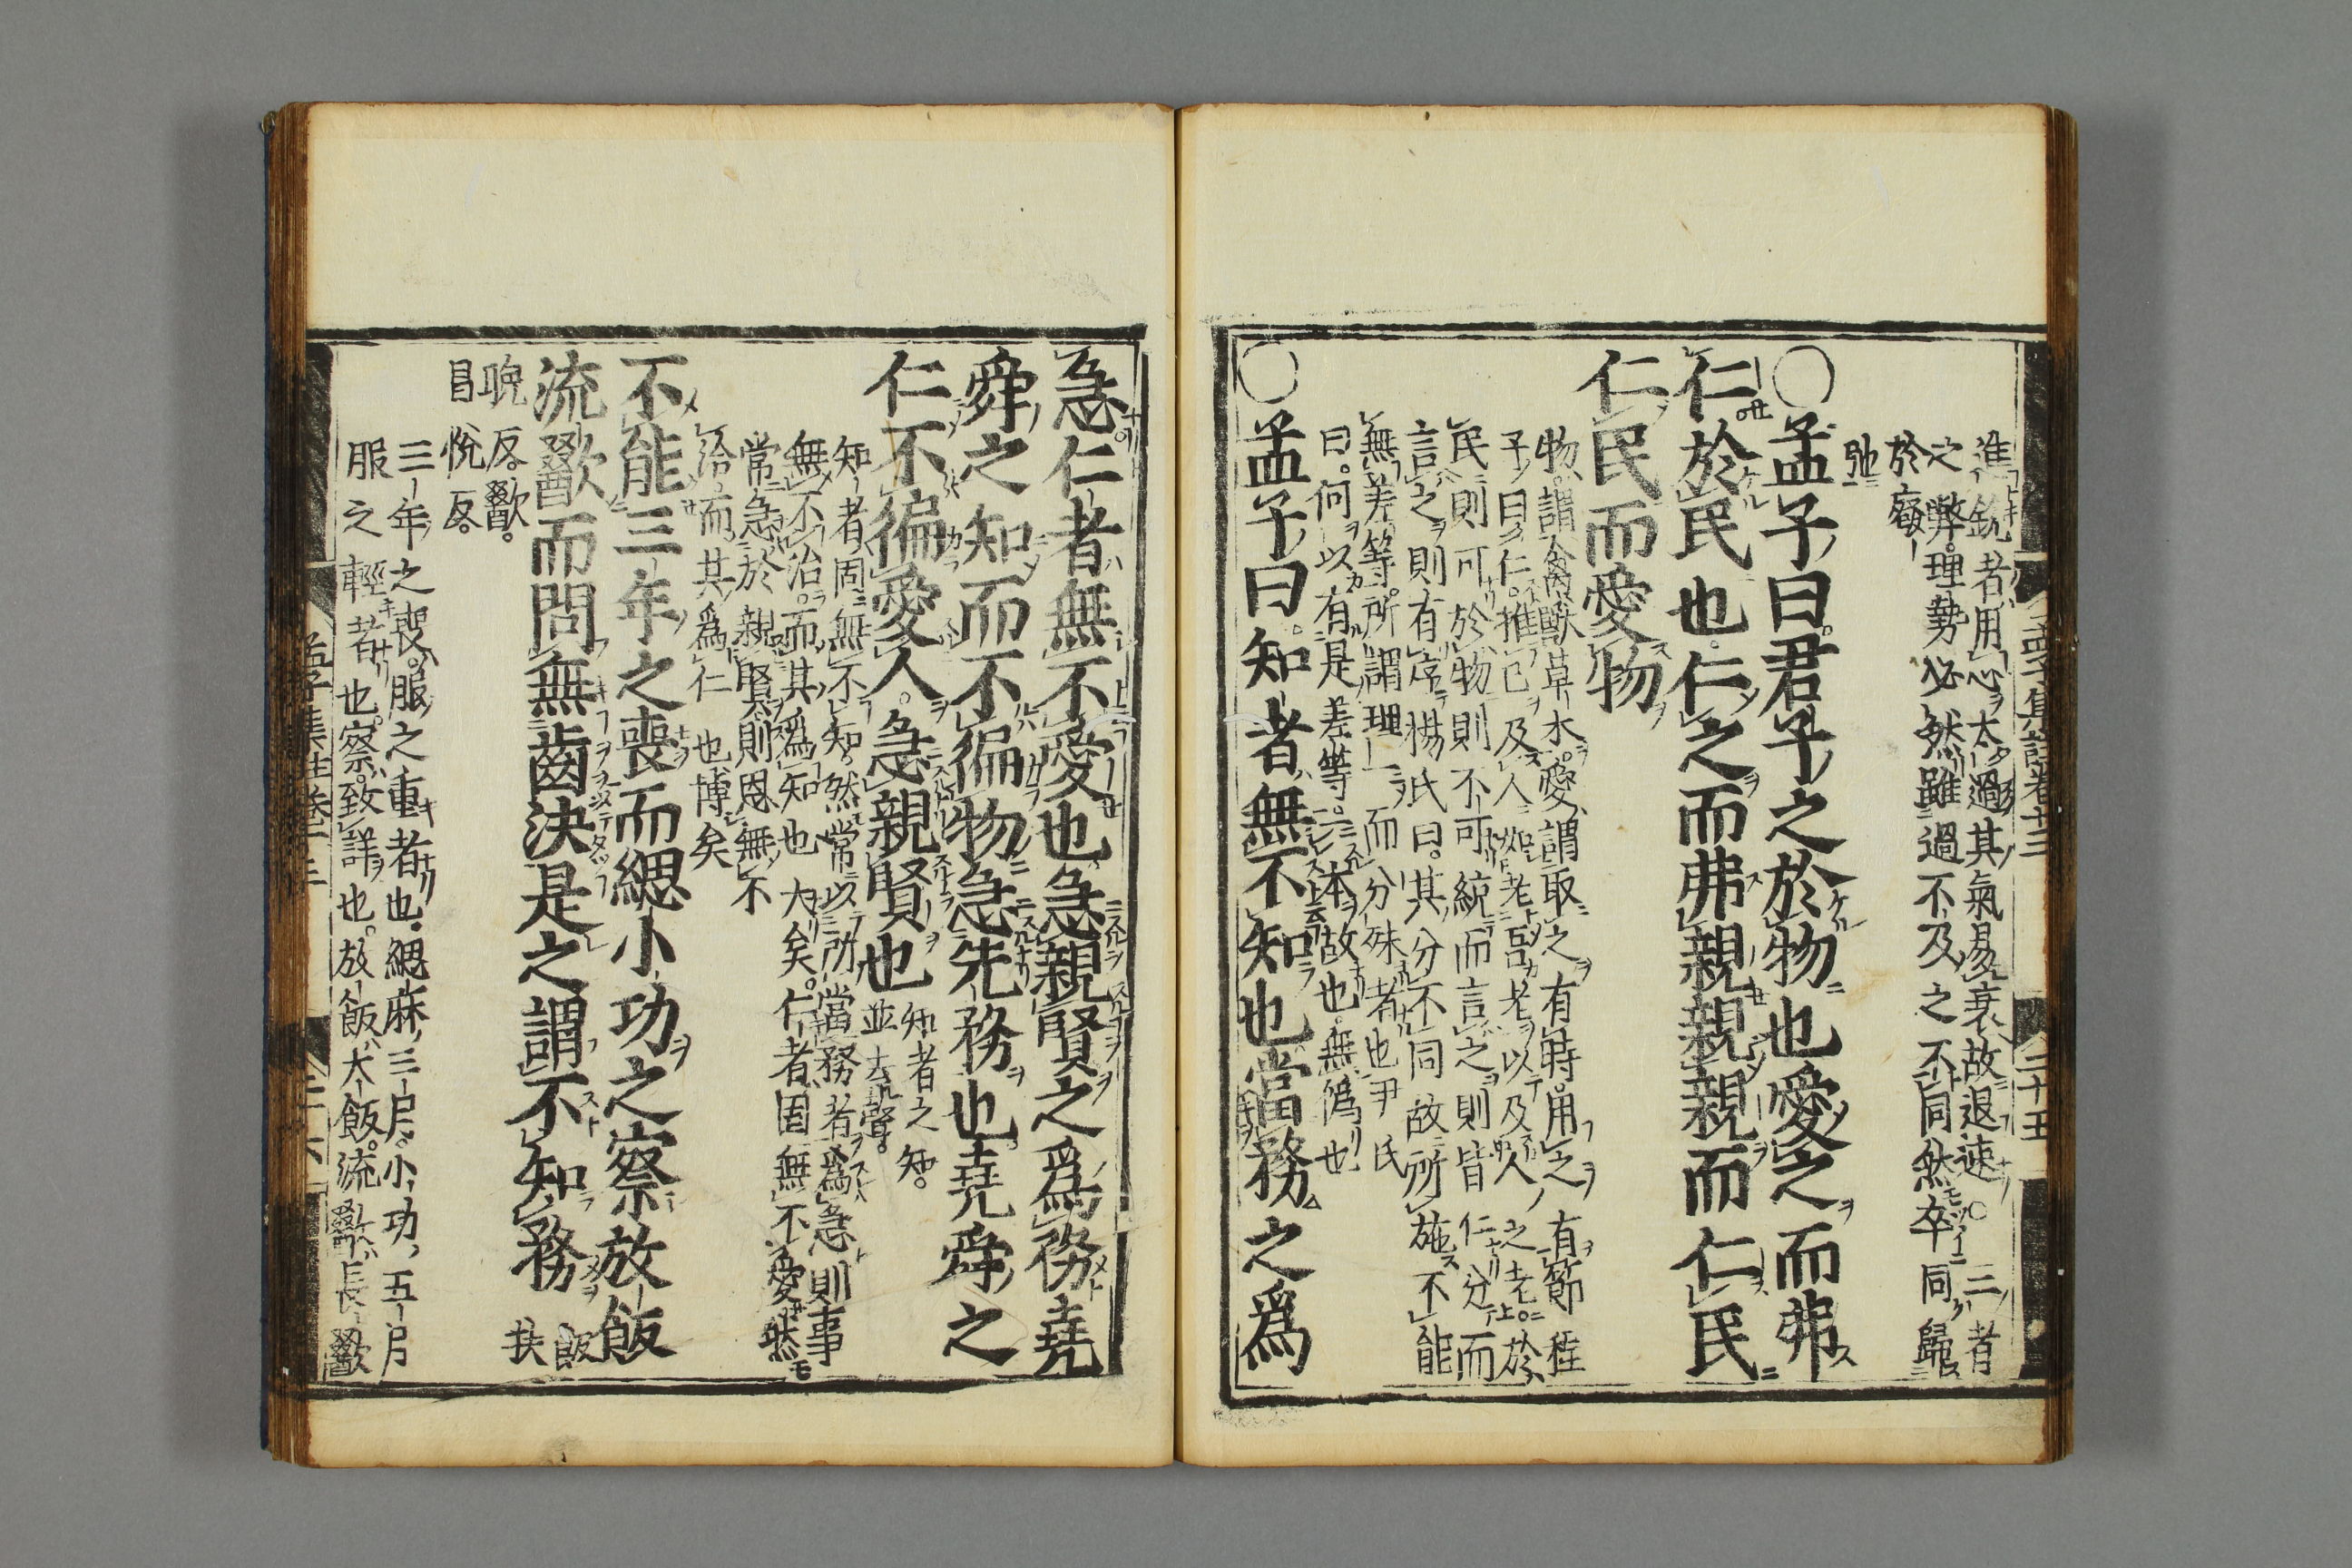 孟子集註卷十三 二十五
進銳者用心太過其氣易衰故退速○三者
之弊理勢必然雖過不及之不同然卒同歸
於廢
弛
○孟子曰君子之於物也愛之而弗
仁於民也仁之而弗親親親而仁民
仁民而愛物
物謂禽獸草木愛謂取之有時用之有節程
子曰仁推己及人如老吾老以及人之老於
民則可於物則不可統而言之則皆仁分而
言之則有序楊氏曰其分不同故所施不能
無差等所謂理一而分殊者也尹氏
曰何以有是差等一本故也無僞也
○孟子曰知者無不知也當務之爲
急仁者無不愛也急親賢之爲務堯
舜之知而不徧物急先務也堯舜之
仁不徧愛人急親賢也
知者之知
並去聲
知者固無不知然常以所當務者爲急則事
無不治而其爲知也大矣仁者固無不愛然
常急於親賢則恩無不
洽而其爲仁也博矣
不能三年之喪而緦小功之察放飯
流歠而問無齒決是之謂不知務
飯
扶
晚反歠
昌悅反
三年之喪服之重者也緦麻三月小功五月
服之輕者也察致詳也放飯大飯流歠長歠
孟子集註卷十三 二十六